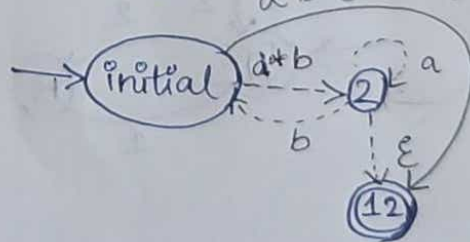 initial
a*b
2
a
b
ε
12